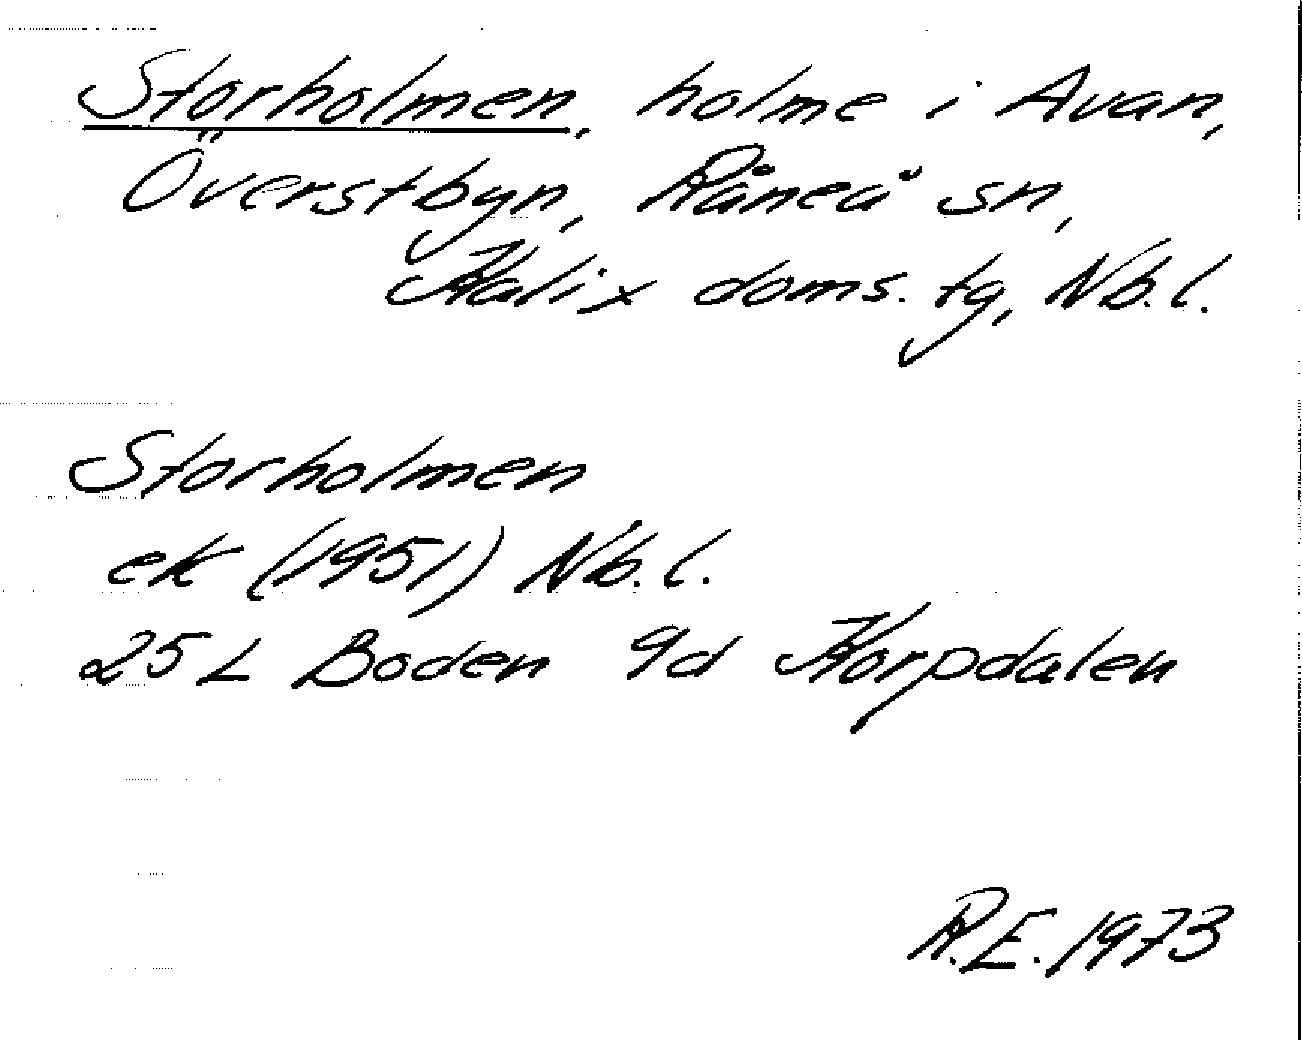 Storholmen, holme i Avan,
Överstbyn, Råneå sn,
Kalix doms. tg, Nb.l.
Storholmen
ek (1951) Nb.l.
25 L Boden 9d Korpdalen
R.E. 1973